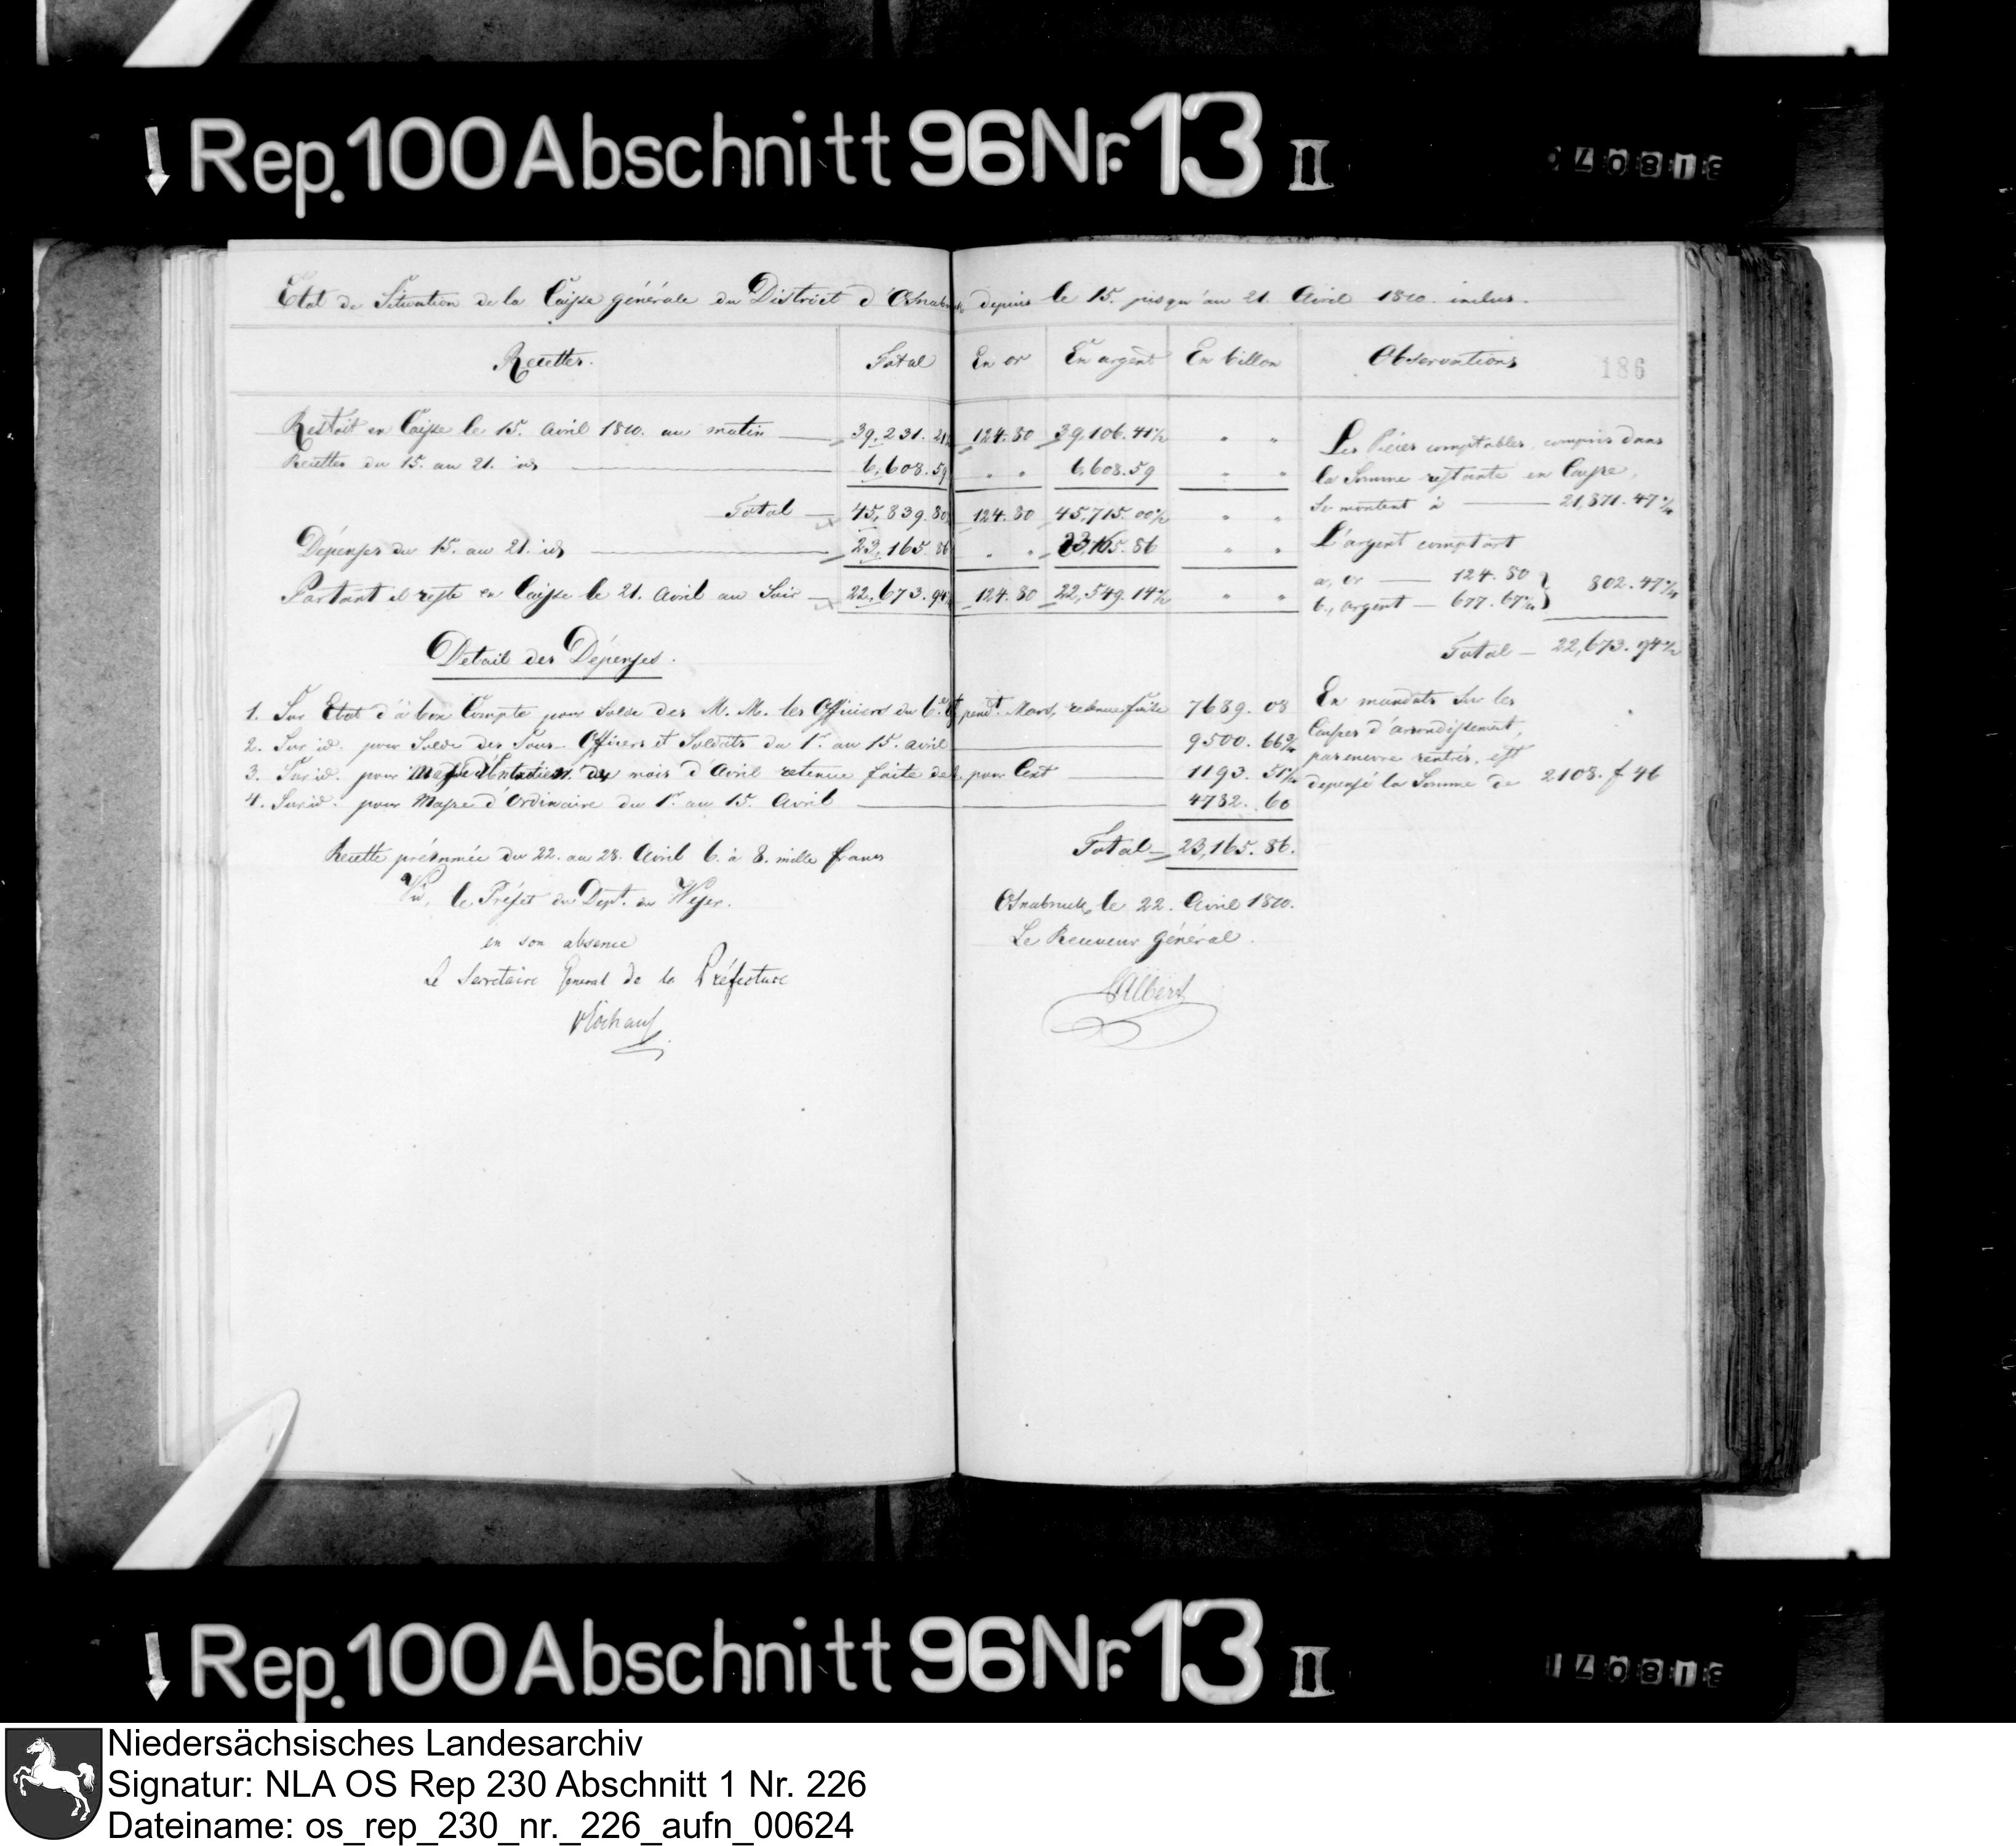 Rep. 100 Abschnitt 96 Nr. 13 II
Etat de Situation de la Caisse générale du District d'Osnabruck depuis le 15. jusqu'au 21. Avril 1810. inclus.
Recettes. Total En or En argent En billon Observations 186
Restoit en Caisse le 15. Avril 1810. au matin 39,231. 21 124. 80 39,106. 41 " " Les Pièces comptables, compris dans
Recettes du 15. au 21. id 6,608. 59 " " 6,608. 59 " " la Somme restante en Caisse,
Total 45,839. 80 124. 80 45,715. 00 " " Se montent à 21,871. 47
Dépenses du 15. au 21. id 23,165. 86 " " 23,165. 86 " " L'argent comptant
Partant il reste en Caisse le 21. Avril au Soir 22,673. 94 124. 80 22,549. 14 " " a, or 124. 80 802. 47
b., argent 677. 67
Total 22,673. 94
Detail des Dépenses.
1. Sur Etat d'à bon Compte pour Solde des M. M. les Officiers du 6. pendt. Mars, retenue faite 7689. 08 En mandats Sur les
2. Sur id. pour Solde des Sous-Officiers et Soldats du 1r. au 15. avril 9500. 66 Caisses d'arrondissement,
3. Sur id. pour Masse d'Entretien du mois d'Avril retenue faite de pour Cent 1193. 51 pas encore rentrés, est
4. Sur id. pour Masse d'Ordinaire du 1r. au 15. Avril 4782. 60 depensé la Somme de 2108. f 46
Total 23,165. 86.
Recette présumée du 22. au 28. Avril 6. à 8. mille francs
Vu, le Préfet du Dept. du Weser.
en son absence
Le Secretaire General de la Préfecture
Osnabruck, le 22. Avril 1810.
Le Receveur général.
Albers
Rep. 100 Abschnitt 96 Nr. 13 II
Niedersächsisches Landesarchiv
Signatur: NLA OS Rep 230 Abschnitt 1 Nr. 226
Dateiname: os_rep_230_nr._226_aufn_00624